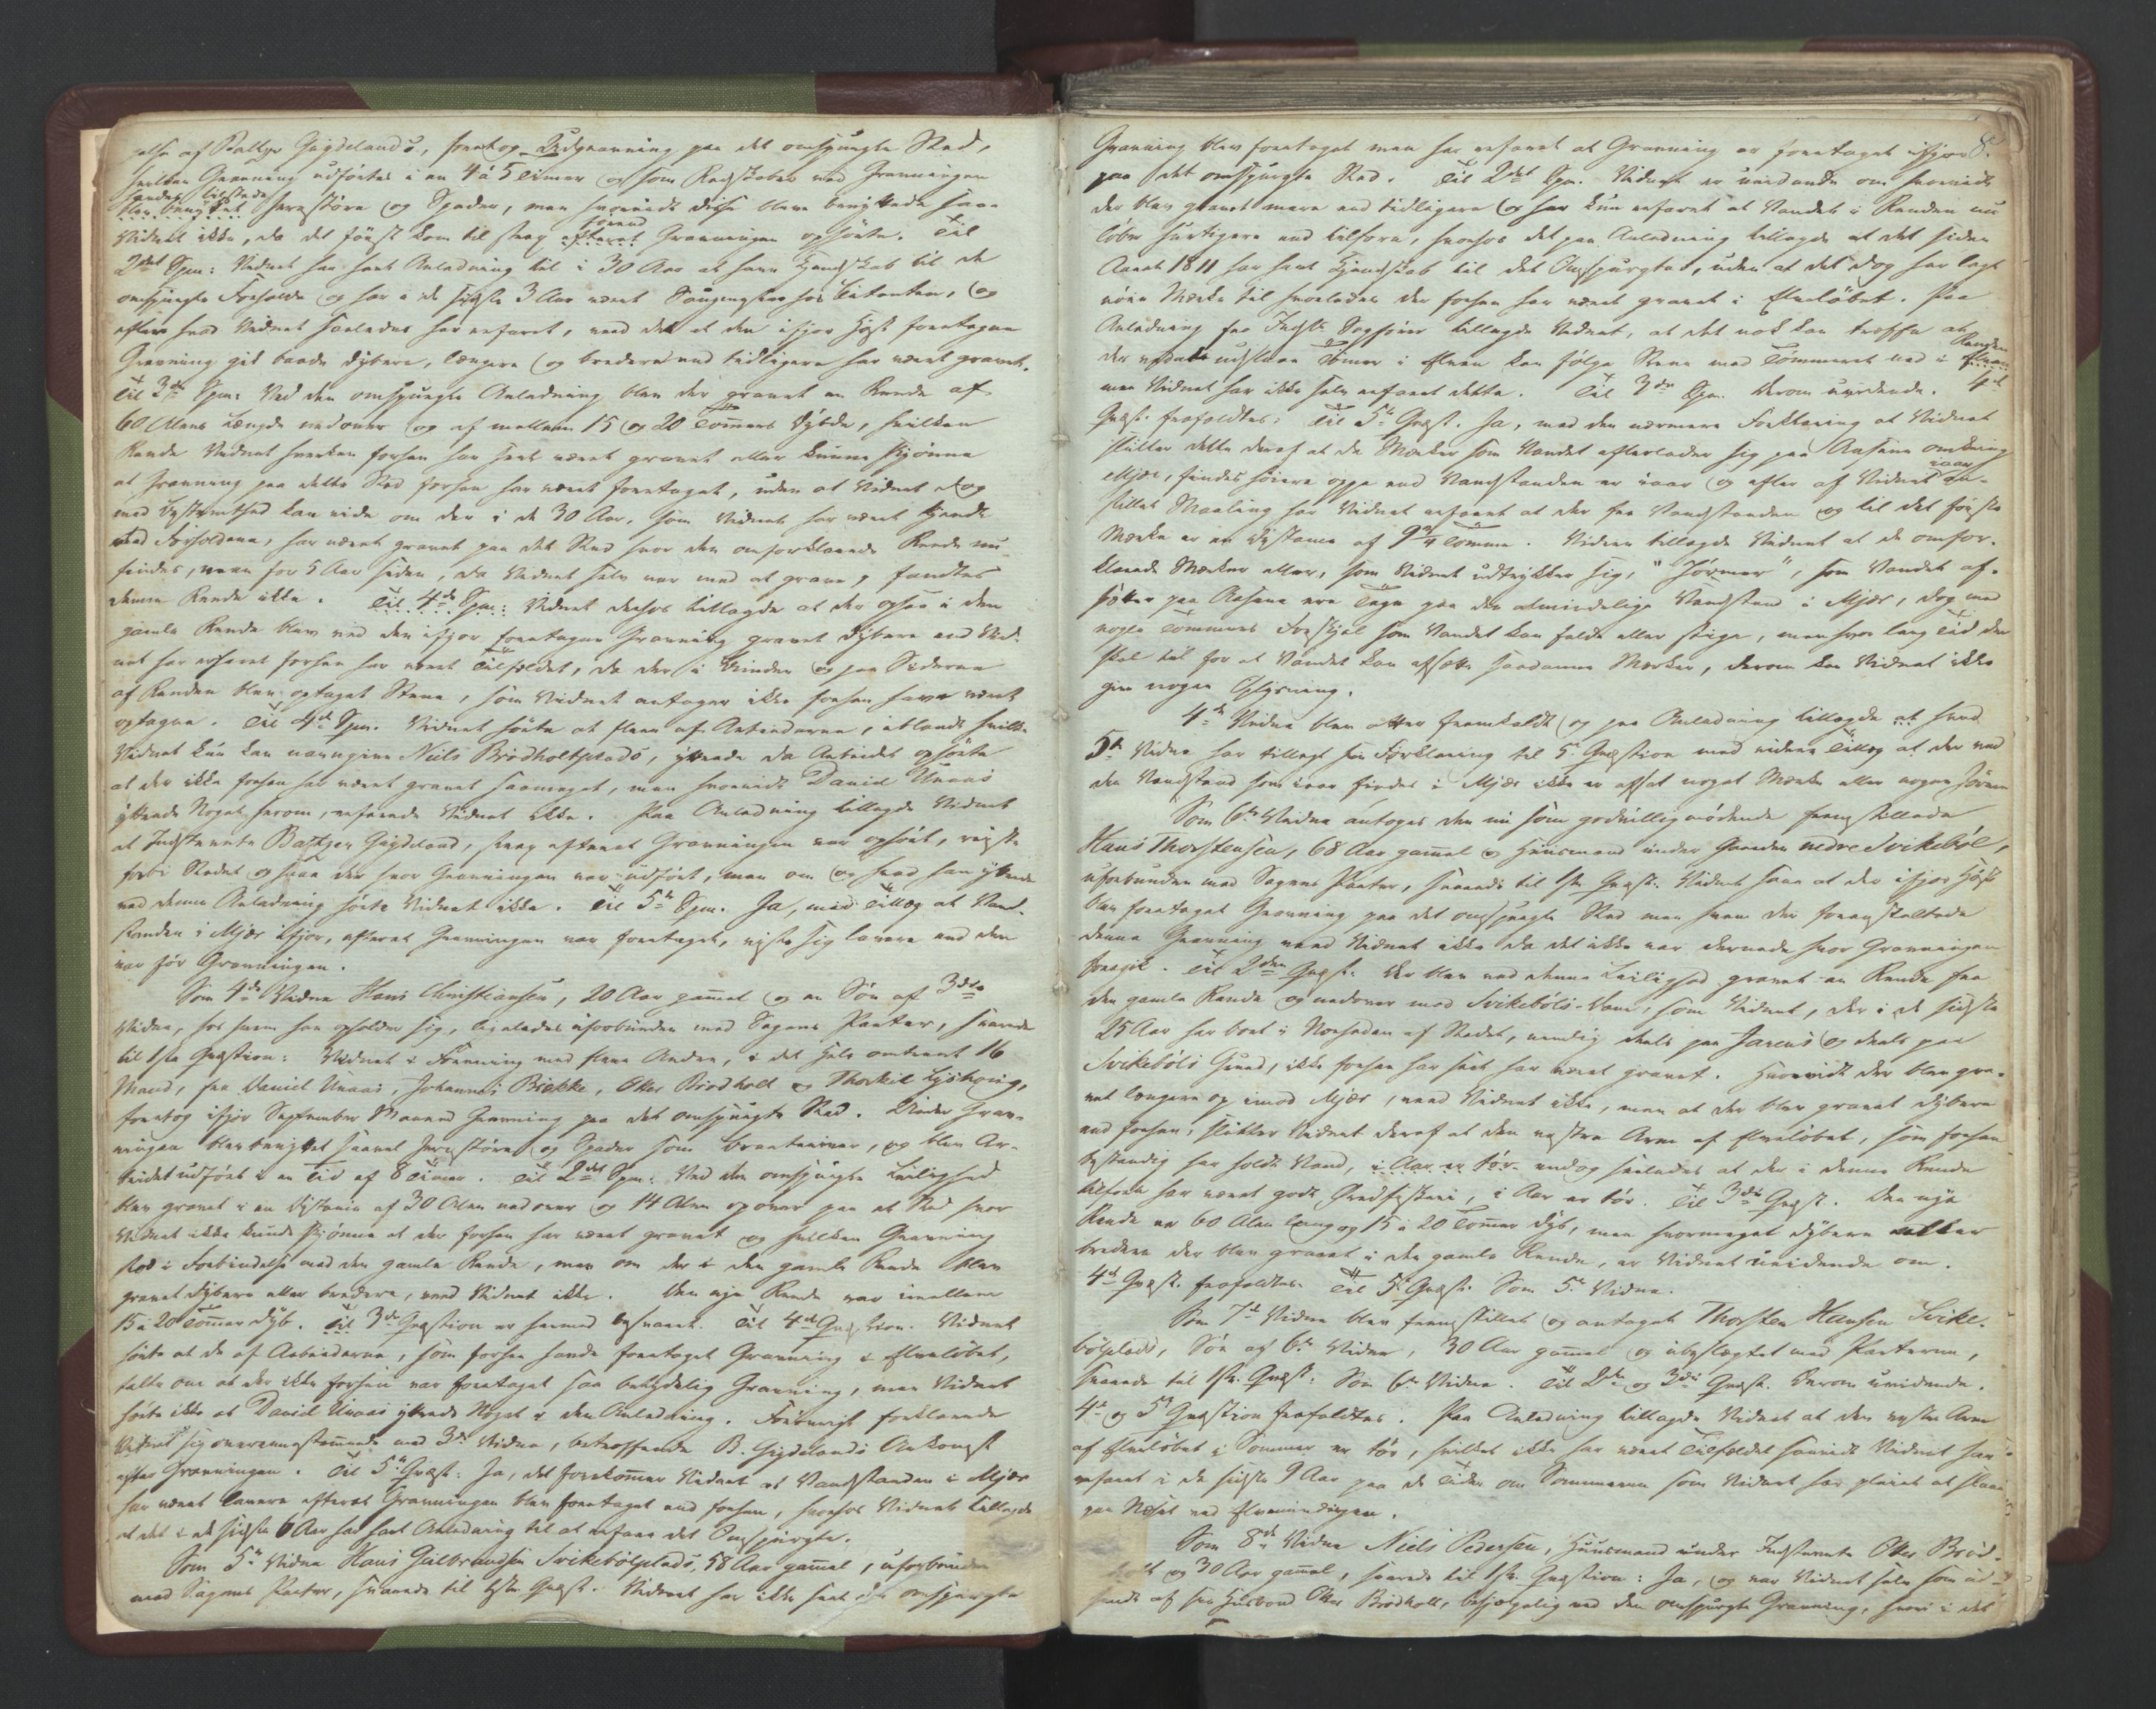 af Baltzer Gigdelands, foretog Udgravning paa det omspurgte Sted,
hvilken Gravning udførtes i en 4 á 5 Timer og som Redskaber ved Gravningen
blev benyttet Jernstøre og Spader, men hvorvidt disse bleve benyttede saae
Vidnet ikke, da det først kom til strax førend Gravningen ophørte. Til
2det Spm: Vidnet har havt Anledning til i 30 Aar at have Kjendskab til de
omspurgte Forholde og har i de sidste 3 Aar været hos Citanten, og
efter hvad Vidnet saaledes har erfaret, veed det at den ifjor Høst foretagne
Gravning gik baade dybere, længere og bredere end tidligere har været gravet.
Til 3die Spm: Ved den omspurgte Anledning blev der gravet en Rende af
60 Alens Længde nedover og af mellem 15 og 20 Tommers Dybde, hvilken
Rende Vidnet hverken forhen har seet været gravet eller kunne skjønne
at Gravning paa dette Sted forhen har været foretaget, uden at Vidnet dog
med Bestemthed kan vide om der i de 30 Aar, som Vidnet har været kjendt
med Forholdene, har været gravet paa det Sted hvor den omforklarede Rende nu
findes, men for 5 Aar siden, da Vidnet selv var med at grave, fandtes
denne Rende ikke. Til 4de Spm: Vidnet derhos tillagde at der ogsaa i den
gamle Rende blev ved den ifjor foretagne Gravning gravet dybere end Vid-
net har erfaret forhen har været Tilfældet, da der i Bunden og paa Siderne
af Renden blev optaget Stene, som Vidnet antager ikke forhen have været
optagne. Til 4de Spm. Vidnet hørte at flere af Arbeiderne, iblandt hvilke
Vidnet kun kan navngive Niels Brödholtplads, yttrede da Arbeidet ophørte
at der ikke forhen har været gravet saameget, men hvorvidt Daniel Unaas
yttrede Noget herom, erfarede Vidnet ikke. Paa Anledning tillagde Vidnet
at Indstevnte Baltzer Gigdeland, strax efterat Gravningen var ophørt, reiste
forbi Stedet og saae der hvor Gravningen var udført, men om og hvad han yttrede
ved denne Anledning hørte Vidnet ikke. Til 5te Spm. Ja, med Tillæg at Vand-
standen i Mjær ifjor, efterat Gravningen var foretaget, viste sig lavere end den
var før Gravningen.
Som 4de Vidne Hans Christiansen, 20 Aar gammel og en Søn af 3die
Vidne, hos hvem han opholder sig, ligeledes uforbunden med Sagens Parter, svarede
til 1ste Qvæstion: Vidnet i Forening med flere Andre, i det Hele omtrent 16
Mand, saa Daniel Unaas, Johannes Brække, Ole Brödholt og Thorkil Lyshoug,
foretog ifjor September Maaned Gravning paa det omspurgte Sted. Under Grav-
ningen blev benyttet saavel Jernstøre og Spader som Brækstænger, og blev Ar-
beidet udført i en Tid af 8 Timer. Til 2det Spm: Ved den omspurgte Leilighed
blev gravet i en Distance af 30 Alen nedover og 14 Alen opover paa et Sted hvor
Vidnet ikke kunde skjønne at der forhen har været gravet og hvilken Gravning
stod i Forbindelse med den gamle Rende, men om der i den gamle Rende blev
gravet dybere eller bredere, veed Vidnet ikke. Den nye Rende var imellem
15 à 20 Tommer dyb. Til 3die Qvæstion er hermed besvaret. Til 4de Qvæstion. Vidnet
hørte at de af Arbeiderne, som forhen havde foretaget Gravning i Elveløbet,
talte om at der ikke forhen var foretaget saa betydelig Gravning, men Vidnet
hørte ikke at Daniel Unaas yttrede Noget i den Anledning. Forøvrigt forklarede
Vidnet sig overensstemmende med 3die Vidne, betræffende B. Gigdelands Ankomst
efter Gravningen. Til 5te Qvæst: Ja, det forekommer Vidnet at Vandstanden i Mjær
har været lavere efterat Gravningen blev foretaget end forhen, hvorhos Vidnet tillagde
at det i de sidste 6 Aar har havt Anledning til at erfare det Omspurgte.
Som 5te Vidne Hans Gulbrandsen Svikebølplads, 58 Aar gammel, uforbunden
med Sagens Parter, svarede til 1ste Qvæst. Vidnet har ikke seet at omspurgte
Gravning blev foretaget men har erfaret at Gravning er foretaget ifjor
paa det omspurgte Sted. Til 2det Spm. Vidnet er uvidende om hvorvidt
der blev gravet mere end tidligere og har kun erfaret at Vandet i Renden nu
løber hurtigere end tilforn, hvorhos det paa Anledning tillagde at det siden
Aaret 1811 har havt Kjendskab til det Omspurgte, uden at det dog har lagt
nøie Mærke til hvorledes der forhen har været gravet i Elveløbet. Paa
Anledning fra Indst: Sagfører tillagde Vidnet, at det nok kan træffe at
der udslaaes Tømmer i Elven kan følge Stene med Tømmeret ned i Renden
men Vidnet har ikke selv erfaret dette. Til 3die Spm. Derom uvidende. 4de
Qvæst: frafaldtes. Til 5te Qvæst. Ja, med den nærmere Forklaring at Vidnet
slutter dette deraf at de Mærker som Vandet efterlader sig paa Aasene omkring
Mjær, findes høiere oppe end Vandstanden er iaar og efter af Vidnet iaar an-
stillet Maaling har Vidnet erfaret at der fra Vandstanden og til det første
Mærke er en Distance af 9 1/4 Tomme. Videre tillagde Vidnet at de omfor-
klarede Mærker eller, som Vidnet udtrykker sig, "Jørmer", som Vandet af-
sætter paa Aasene ere Tegn paa den almindelige Vandstand i Mjær, dog med
nogle Tommers Forskjel som Vandet kan falde eller stige, men hvor lang Tid der
skal til for at Vandet kan afsætte saadanne Mærker, derom kan Vidnet ikke
give nogen Oplysning.
4de Vidne blev atter fremkaldt og paa Anledning tillagde at hvad
5te Vidne har tillagt sin Forklaring til 5te Qvæstion med videre Tillæg at der ved
den Vandstand som iaar findes i Mjær ikke er afsat noget Mærke eller nogen Jørm
Som 6te Vidne antoges den nu som godvillig mødende fremstillede
Hans Thorstensen, 68 Aar gammel og Huusmand under Gaarden nedre Svikebøl,
uforbunden med Sagens Parter, svarede til 1ste Qvæst: Vidnet saae at der ifjor Høst
blev foretaget Gravning paa det omspurgte Sted men hvem der foranstaltede
denne Gravning veed Vidnet ikke da det ikke var dernede hvor Gravningen
foregik. Til 2den Qvæst: Der blev ved denne Leilighed gravet en Rende fra
den gamle Rende og nedover mod Svikebøls-Vand, som Vidnet, der i de sidste
25 Aar har boet i Nærheden af Stedet, nemlig deels paa Jarens og deels paa
Svikebøls Grund, ikke forhen har seet har været gravet. Hvorvidt der blev gra-
vet længere op imod Mjær, veed Vidnet ikke, men at der blev gravet dybere
end forhen, slutter Vidnet deraf at den vestre Arm af Elveløbet, som forhen
bestandig har holdt Vand, i Aar er tør endog saaledes at der i denne Rende
tilforn har været godt Ørretfiskeri, i Aar er tør. Til 3die Qvæst. Den nye
Rende er 60 Alen lang og 15 à 20 Tommer dyb, men hvormeget dybere eller
bredere der blev gravet i den gamle Rende, er Vidnet uvidende om.
4de Qvæst. frafaldtes. Til 5te Qvæst. Som 5te Vidne.
Som 7de Vidne blev fremstillet og antaget Thorsten Hansen Svike-
bølplads, Søn af 6te Vidne, 30 Aar gammel og ubeslægtet med Parterne,
svarede til 1ste Qvæst: Som 6te Vidne. Til 2den og 3die Qvæst. Derom uvidende.
4de og 5te Qvæstion frafaldtes. Paa Anledning tillagde Vidnet at den vestre Arm
af Elveløbet i Sommer er tør, hvilket ikke har været Tilfældet saavidt Vidnet har
erfaret i de sidste 9 Aar paa de Tider om Sommeren som Vidnet har pleiet at slaae
paa Næset ved Elvemundingen.
Som 8de Vidne Niels Pedersen, Huusmand under Indstevnte Ole Bröd-
holt og 30 Aar gammel, svarede til 1ste Qvæstion: Ja, og var Vidnet selv som ud-
sendt af sin Husbond Ole Brödholt, behjelpelig ved den omspurgte Gravning, hvori i det